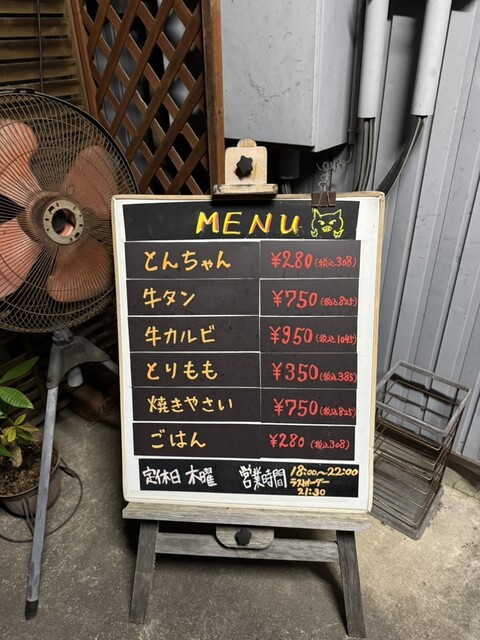 MENU
とんちゃん ¥280(税込308)
牛タン ¥750(税込825)
牛カルビ ¥950(税込1045)
とりもも ¥350(税込385)
焼きやさい ¥750(税込825)
ごはん ¥280(税込308)
定休日 木曜 営業時間 18:00~22:00
ラストオーダー
21:30